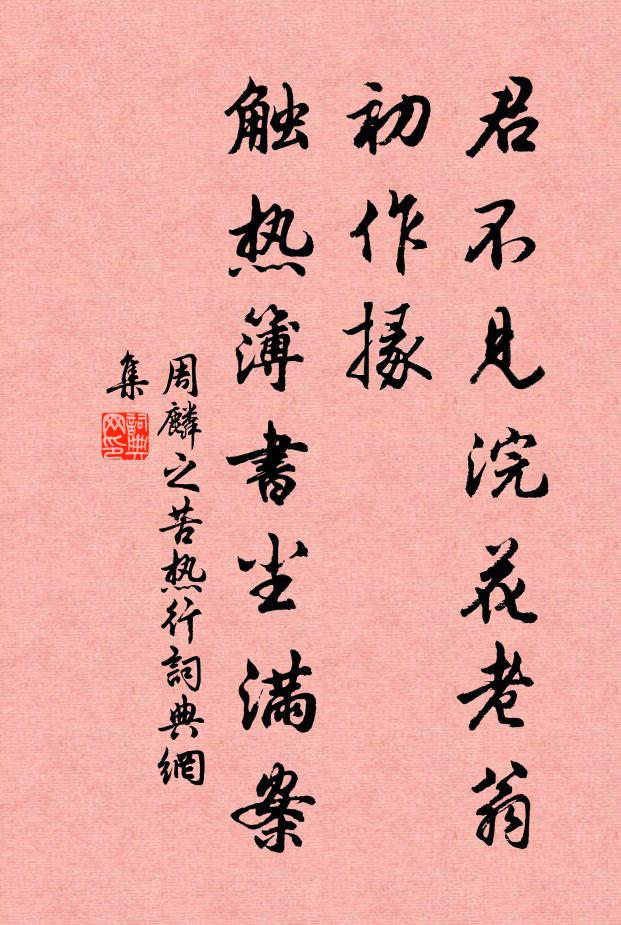 君不见浣花老翁
初作掾
触热簿书尘满案
周麟之苦热行詞典網
集
詞典
网印